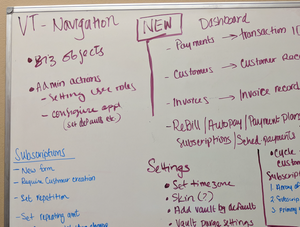 VT - Navigation
• Biz objects
• Admin actions
- Setting user roles
- configure appl
(set defaults etc)
Subscriptions
- New form
- Require Customer creation
- Set repetition
- Set repeating amt
NEW Dashboard
- Payments → transaction
- Customers → Customer Reco
- Invoices → Invoice record
- ReBill / Autopay / Payment plans
Subscriptions / Sched payments
Settings
• Set timezone
• Skin (?)
• Add vault by default
• Vault
settings
• Cycle
custom
Subscripti
1 Array of
2 Subscrip
3 Primary